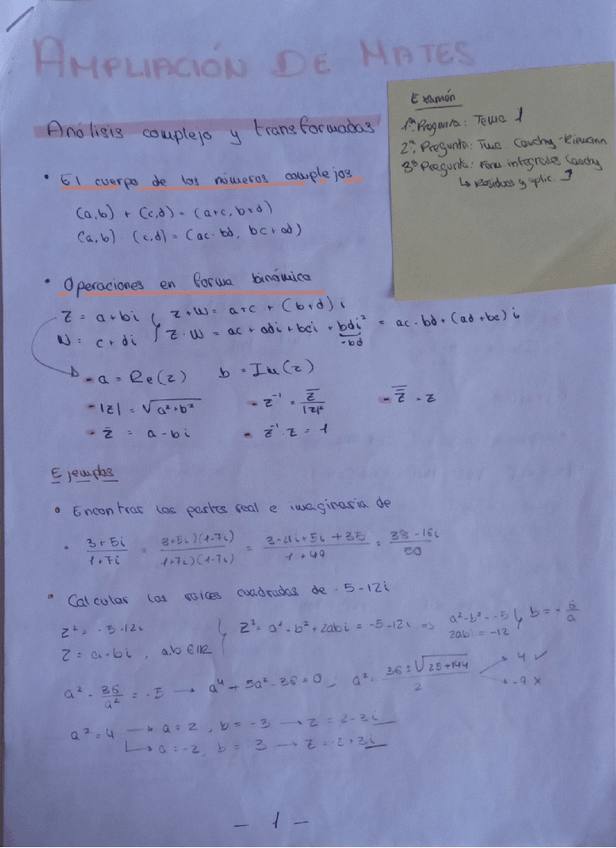 AMPLIACIÓN DE MATES
Examén
1ª Pregunta: Tema 1
2ª Pregunta: Tma. Cauchy-Riemann
3ª Pregunta: integrales Cauchy
↳ Residuos y aplic.
Análisis complejo y transformadas
• El cuerpo de los números complejos
(a,b) + (c,d) = (a+c, b+d)
(a,b) · (c,d) = (ac-bd, bc+ad)
• Operaciones en forma binómica
z = a+bi } z+w = a+c + (b+d)i
w = c+di } z·w = ac + adi + bci + bdi² = ac-bd + (ad+bc)i
-bd
- a = Re(z) b = Im(z)
- |z| = √a²+b² - z⁻¹ = z̄/|z|² - z̿ = z
- z̄ = a-bi - z⁻¹·z = 1
Ejemplos
• Encontrar las partes real e imaginaria de
• 3+5i/1+7i = (3+5i)(1-7i)/(1+7i)(1-7i) = 3-21i+5i+35/1+49 = 38-16i/50
• Calcular las raíces cuadradas de -5-12i
z² = -5-12i } z² = a²-b²+2abi = -5-12i ⇒ a²-b² = -5 } b = -6/a
z = a+bi, a,b ∈ ℝ 2abi = -12
a² - 36/a² = -5 → a⁴ + 5a² - 36 = 0 a² = √25+144/2 → 4 ✓
→ -9 ✗
a² = 4 → a = 2, b = -3 → z = 2-3i
↳ a = -2, b = 3 → z = -2+3i
- 1 -